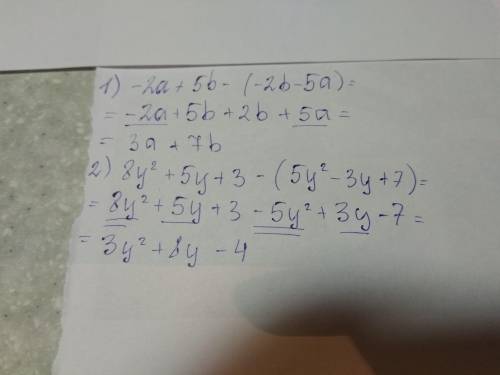 1) -2a + 5b - (-2b - 5a) =
= -2a + 5b + 2b + 5a =
= 3a + 7b
2) 8y² + 5y + 3 - (5y² - 3y + 7) =
= 8y² + 5y + 3 - 5y² + 3y - 7 =
= 3y² + 8y - 4